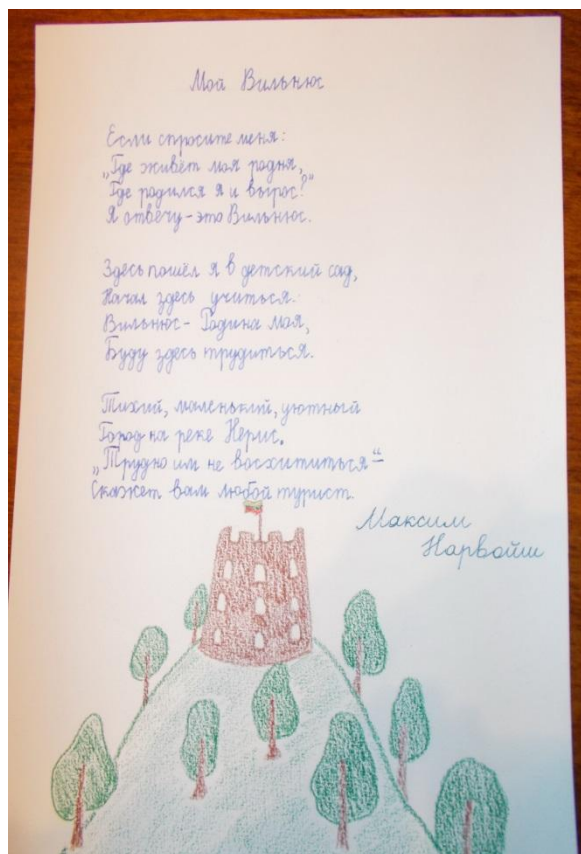 Мой Вильнюс
Если спросите меня:
„Где живёт моя родня,
Где родился я и вырос?"
Я отвечу - это Вильнюс.
Здесь пошёл я в детский сад,
Начал здесь учиться.
Вильнюс - Родина моя,
Буду здесь трудиться.
Тихий, маленький, уютный
Город на реке Нерис.
„Трудно им не восхититься“ -
Скажет вам любой турист.
Максим
Нарвойш